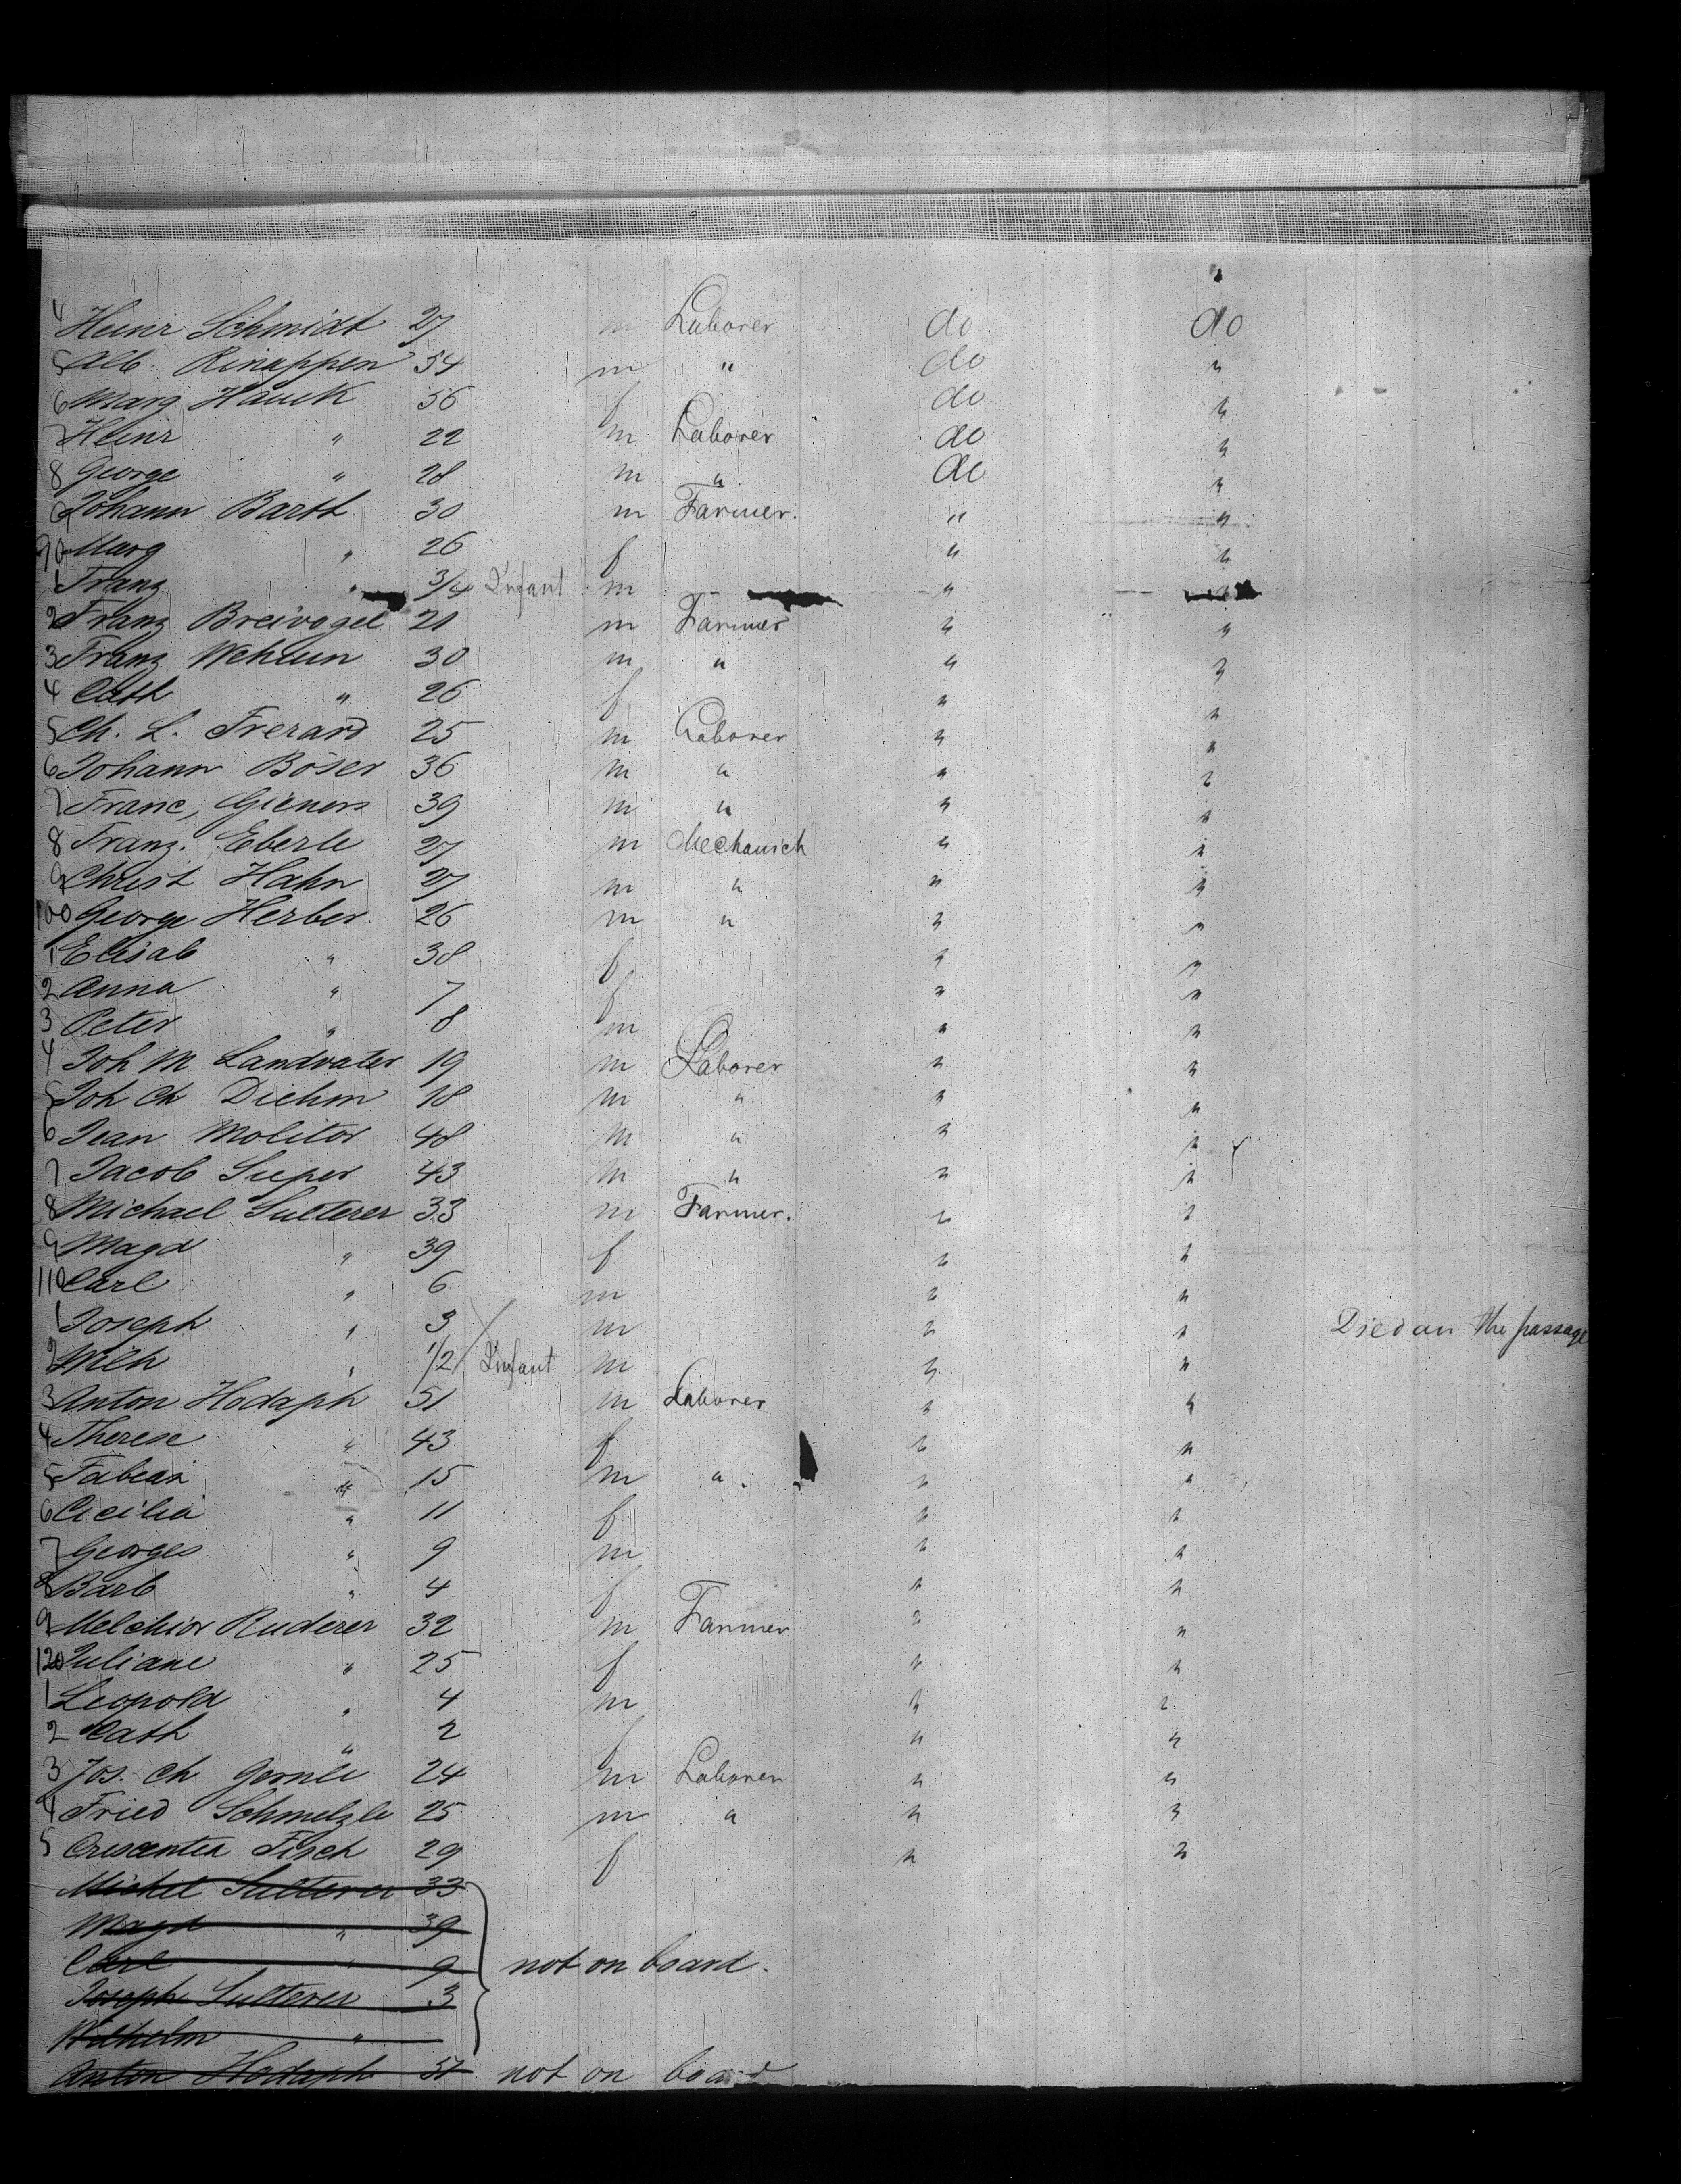 4 Heinr Schmidt 27 m Laborer do do
5 Alb. Rinappen 54 m " do "
6 Marg Hauck 56 f do "
7 Heinr " 22 m Laborer do "
8 George " 28 m " do "
9 Johann Barth 30 m Farmer. " "
90 Marg " 26 f " "
1 Franz " 3/4 Infant m " "
2 Franz Breivogel 21 m Farmer " "
3 Franz Wehrun 30 m " " "
4 Cath " 26 f " "
5 Ch. L. Frerard 25 m Laborer " "
6 Johann Böser 36 m " " "
7 Franc, Gieners 39 m " " "
8 Franz. Eberle 27 m Mechanich " "
9 Christ Hahn 27 m " " "
100 George Herber 26 m " " "
1 Elisab " 38 f " "
2 Anna " 7 f " "
3 Peter " 8 m " "
4 Joh M Landvater 19 m Laborer " "
5 Joh Ch Diehm 18 m " " "
6 Jean Molitor 48 m " " "
7 Jacob Sieper 43 m " " "
8 Michael Sutterer 33 m Farmer. " "
9 Magd " 39 f " "
110 Carl " 6 m " "
1 Joseph " 3 m " " Died an the passage
2 Wilh " 1/2 Infant m " "
3 Anton Hodaph 51 m Laborer " "
4 Therese " 43 f " "
5 Fabian " 15 m " " "
6 Cicilia " 11 f " "
7 Georges " 9 m " "
8 Barb " 4 f " "
9 Melchior Ruderer 32 m Farmer " "
120 Juliane " 25 f " "
1 Leopold " 4 m " "
2 Cath " 2 f " "
3 Jos. Ch 24 m Laborer " "
4 Fried Schmelzle 25 m " " "
5 Crescentia Fisch 29 f " "
Michel Sutterer 33
Magd " 39
Carl " 9 not on board.
Joseph Sutterer 3
Wilhelm "
Anton Hodaph 51 not on board